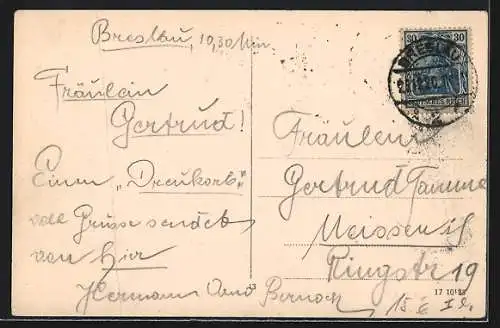 Breslau, 10,30 Min
Fräulein
Gertrud!
Einen „Dreukorb“
voll Grüsse sendet
von hier
Hermann Arno
30 30
BRESLAU
DEUTSCHES REICH
Fräulein
Gertrud
Meissen
Ringstr 19
17 10123
15